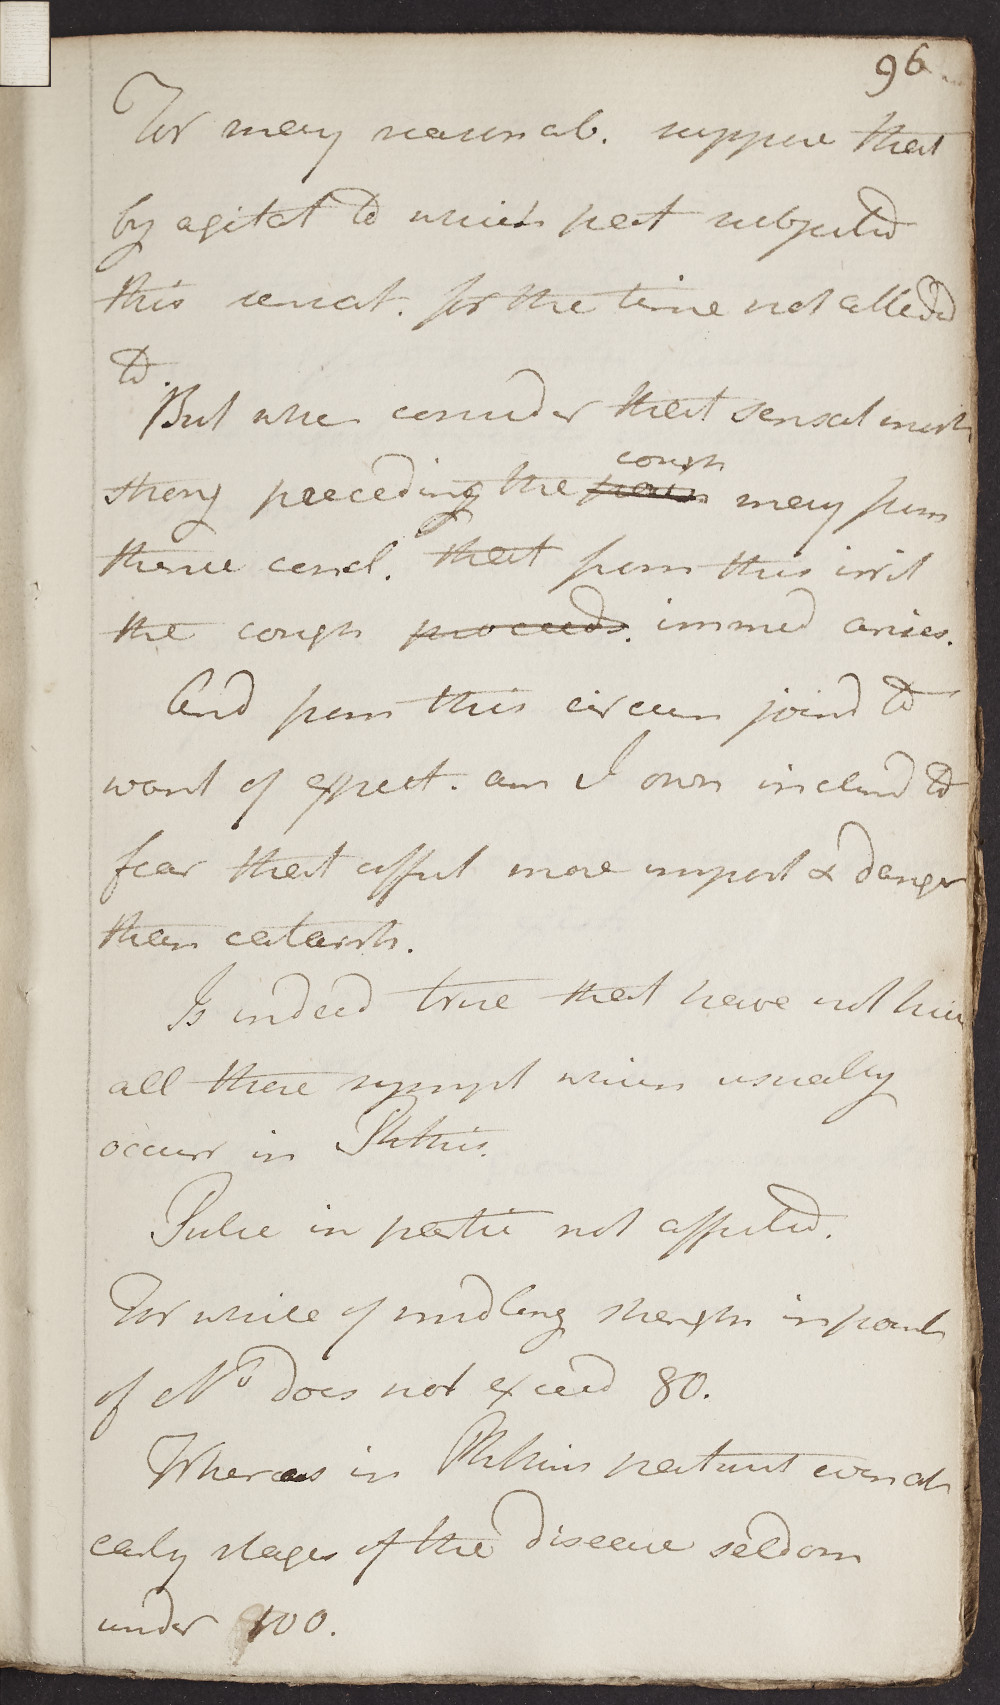 96
For may reasonab. suppose that
by agitat to which pat subjected
this sensat. for the time not attended
to.
But when consider that sensat much
strong preceeding the pain cough may from
thence concl. that from this irrit
the cough proceeds. immed arises.
And from this circum joind to
want of expect. am I own inclind to
fear that affect more import & danger
than catarrh.
Is indeed true that have not here
all those sympt which usually
occurr in Phthis.
Pulse in partic not affected.
For while of midling strength in point
of No does not exceed 80.
Whereas in Phthisis patient even at
early stages of the disease seldom
under 100.